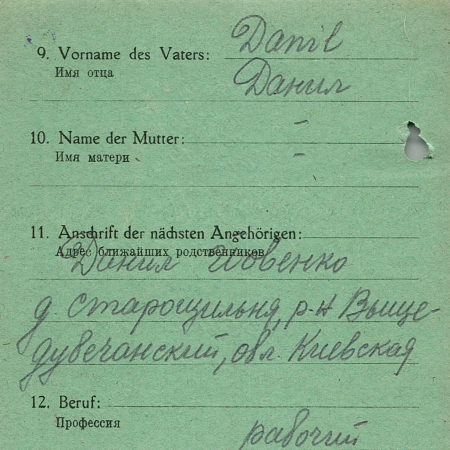 9. Vorname des Vaters: Danil
Имя отца Данил
10. Name der Mutter: –
Имя матери –
11. Anschrift der nächsten Angehörigen:
Адрес ближайших родственников
Данил Йовенко
д. Старощильня, р-н Выще-
дувечанский, обл. Киевская
12. Beruf:
Профессия рабочий